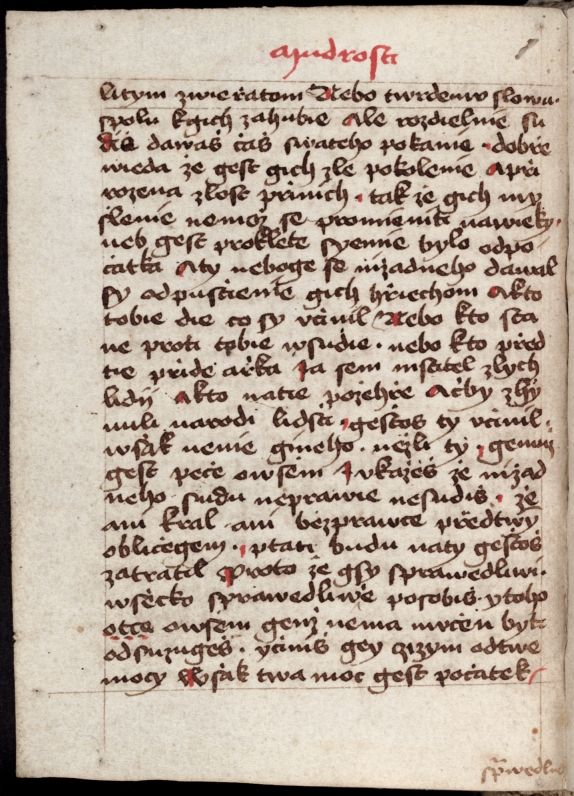 Mudrosti
litym zwieřatom Nebo twrdemv slowu·
spolu kgich zahubie Ale rozdielnie su
dis dawaš čas swateho pokanie · dobře
wieda že gest gich zle pokolenie Apři
rozena zlost přinich · tak že gich my
šlenie nemož se promieniti nawieky·
neb gest proklete syemie bylo odpo
čatka Aty neboge se nizadneho dawal
sy odpuščienie gich hřiechom Akto
tobie die co sy včinil Nebo kto sta
ne proti tobie wsudie · nebo kto před
tie přide ařka Ja sem mstitel zlych
lidij Akto natie požehře Ačby zhy
nuli narodi lidsti gestos ty včinil·
wšak nenie gineho · nežli ty genuz
gest peče owsem J vkažes že nižad
neho sudu neprawie nesudiš · že
ani kral · ani bezprawce předtwy
obličegem · ptati budu naty gestos
zatratil Proto že gsy sprawedliwi·
wsěcko sprawedliwě posobiš· ytoho
otce owsem genž nema mučen byti
odsuzuges · yčiniš gey czizym odtwe
mocy Wšak twa moc gest počatek
sprwedlno